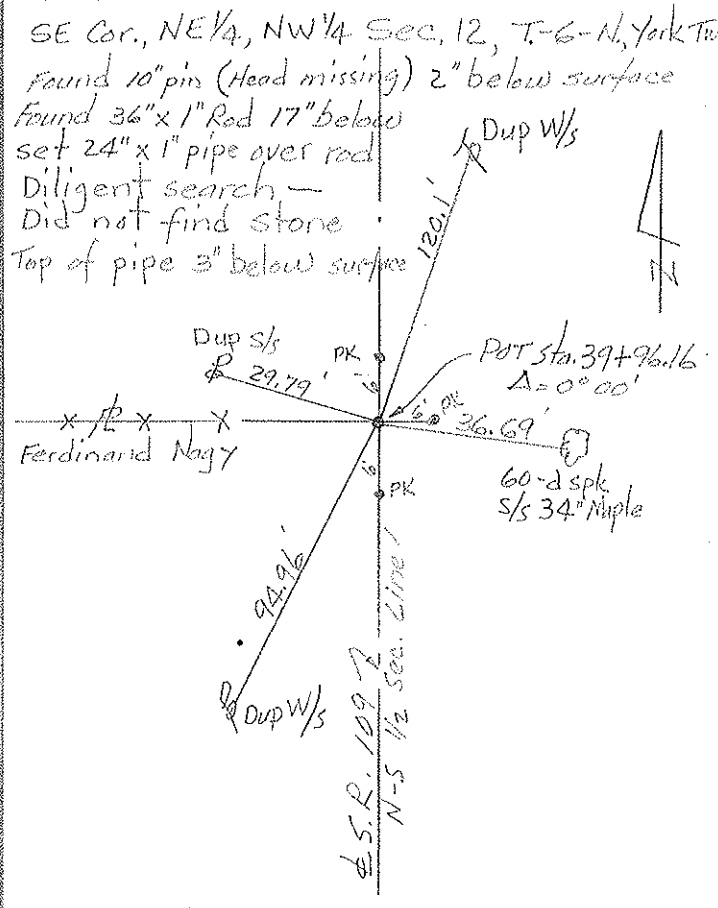 SE Cor., NE¼, NW¼ Sec. 12, T-6-N., York Tw
Found 10" pin (Head missing) 2" below surface
Found 36" x 1" Rod 17" below
set 24" x 1" pipe over rod
Diligent search —
Did not find stone
Top of pipe 3" below surface
Dup W/s
120.1'
N
Dup S/s
29.79'
PK
6'
POT Sta. 39+96.16
Δ=0°00'
6'
PK
36.69'
x PL x x
Ferdinand Nagy
6'
PK
60-d spk
S/s 34" Maple
94.96'
Dup W/s
℄ S.R. 109
N-S ½ Sec. Line